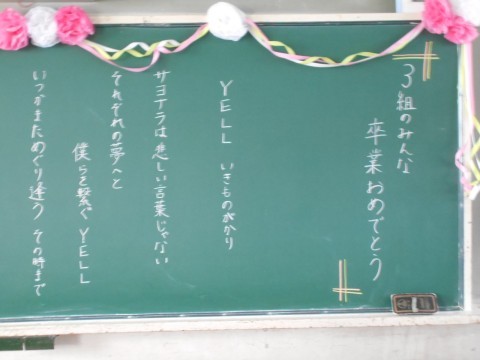 3組のみんな
卒業おめでとう
YELL いきものがかり
サヨナラは悲しい言葉じゃない
それぞれの夢へと
僕らを繋ぐ YELL
いつかまためぐり逢う その時まで